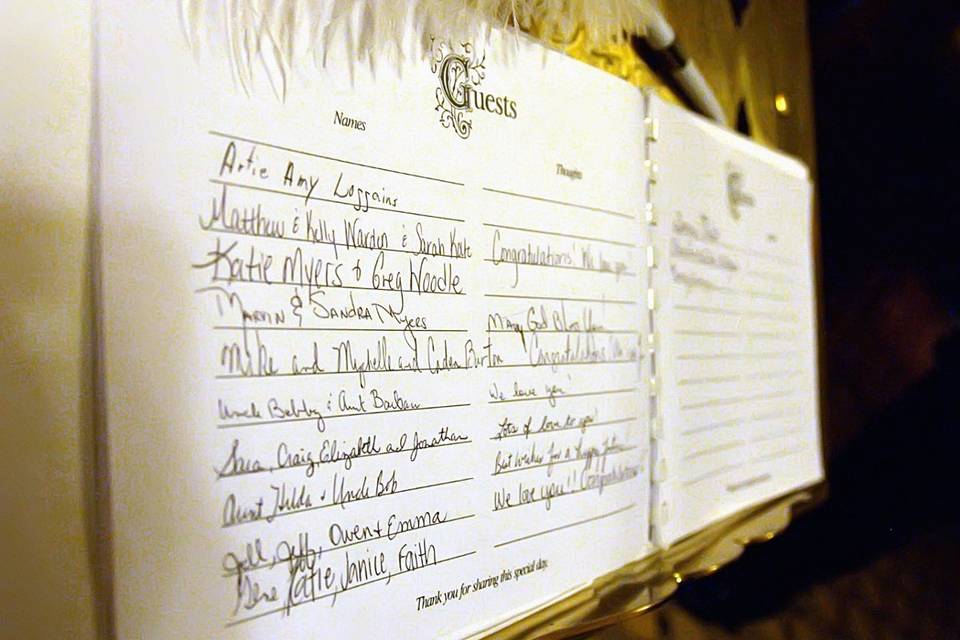 Guests
Names Thoughts
Artie Amy Loggains
Matthew & Kelly Warden & Sarah Kate Congratulations! We love you
Katie Myers & Greg Woodle
Marvin & Sandra Myers May God Bless
Mike and Mychelle and Caden Burton Congratulations
Uncle Bobby & Aunt Barbara We love you!
Sara, Craig, Elizabeth and Jonathan Lots of love to you!
Aunt Hilda & Uncle Bob Best wishes for a Happy future
Jill, Jeff, Owen & Emma We love you!! Congratulations
Gene, Katie, Janice, Faith
Thank you for sharing this special day.